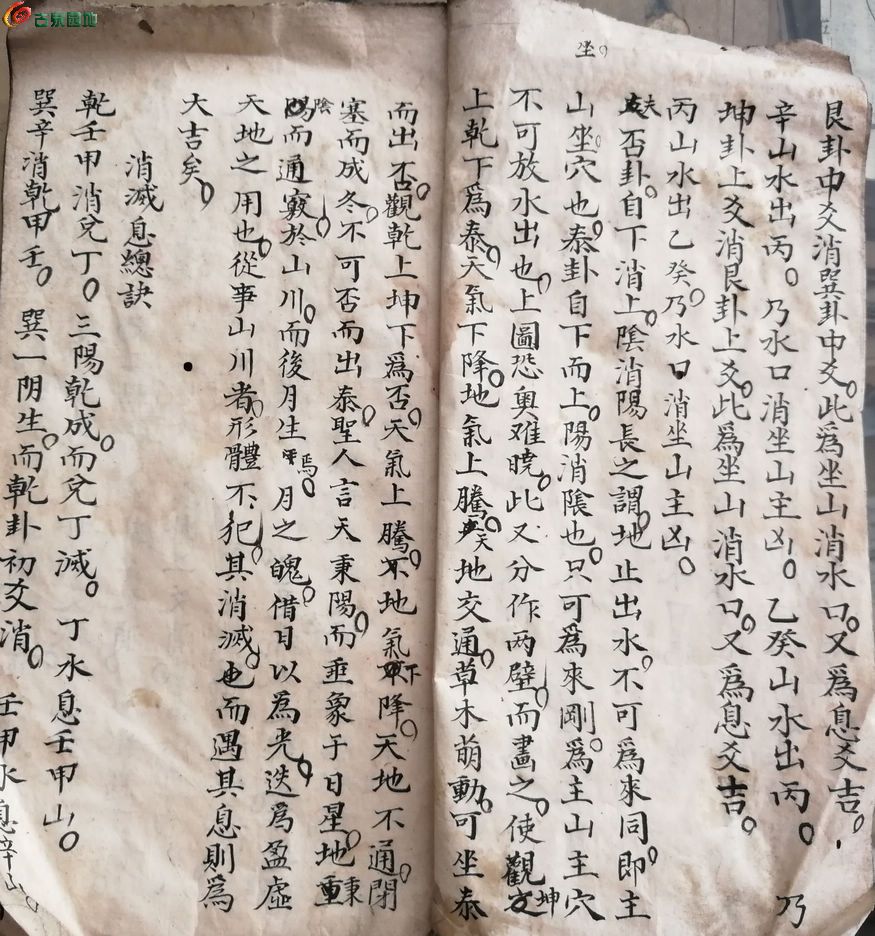 古泉園地
坐
艮卦中爻消巽卦中爻此爲坐山消水口又爲息爻吉
辛山水出丙。乃水口消坐山主凶。乙癸山水出丙。乃
坤卦上爻消艮卦上爻此爲坐山消水口又爲息爻吉
丙山水出乙癸乃水口消坐山主凶
夫否卦自下消上陰消陽長之謂地止出水不可爲來同即主
山坐穴也泰卦自下而上陽消陰也只可爲來剛爲主山主穴
不可放水出也上圖恐奥难曉此又分作两壁而畫之使觀坤
上乾下爲泰天氣下降地氣上騰天地交通草木萌動可坐泰
而出否觀乾上坤下爲否天氣上騰地氣下降天地不通閉
塞而成冬不可否而出泰聖人言天秉陽而垂象于日星地秉
陰而通竅於山川而後月生焉月之魄借日以為光迭爲盈虛
天地之用也從事山川者形體不犯其消滅也而遇其息則爲
大吉矣
消滅息總訣
乾壬甲消兌丁。三陽乾成而兌丁滅。丁水息壬甲山。
巽辛消乾甲壬。巽一阴生而乾卦初爻消。壬甲水息辛山